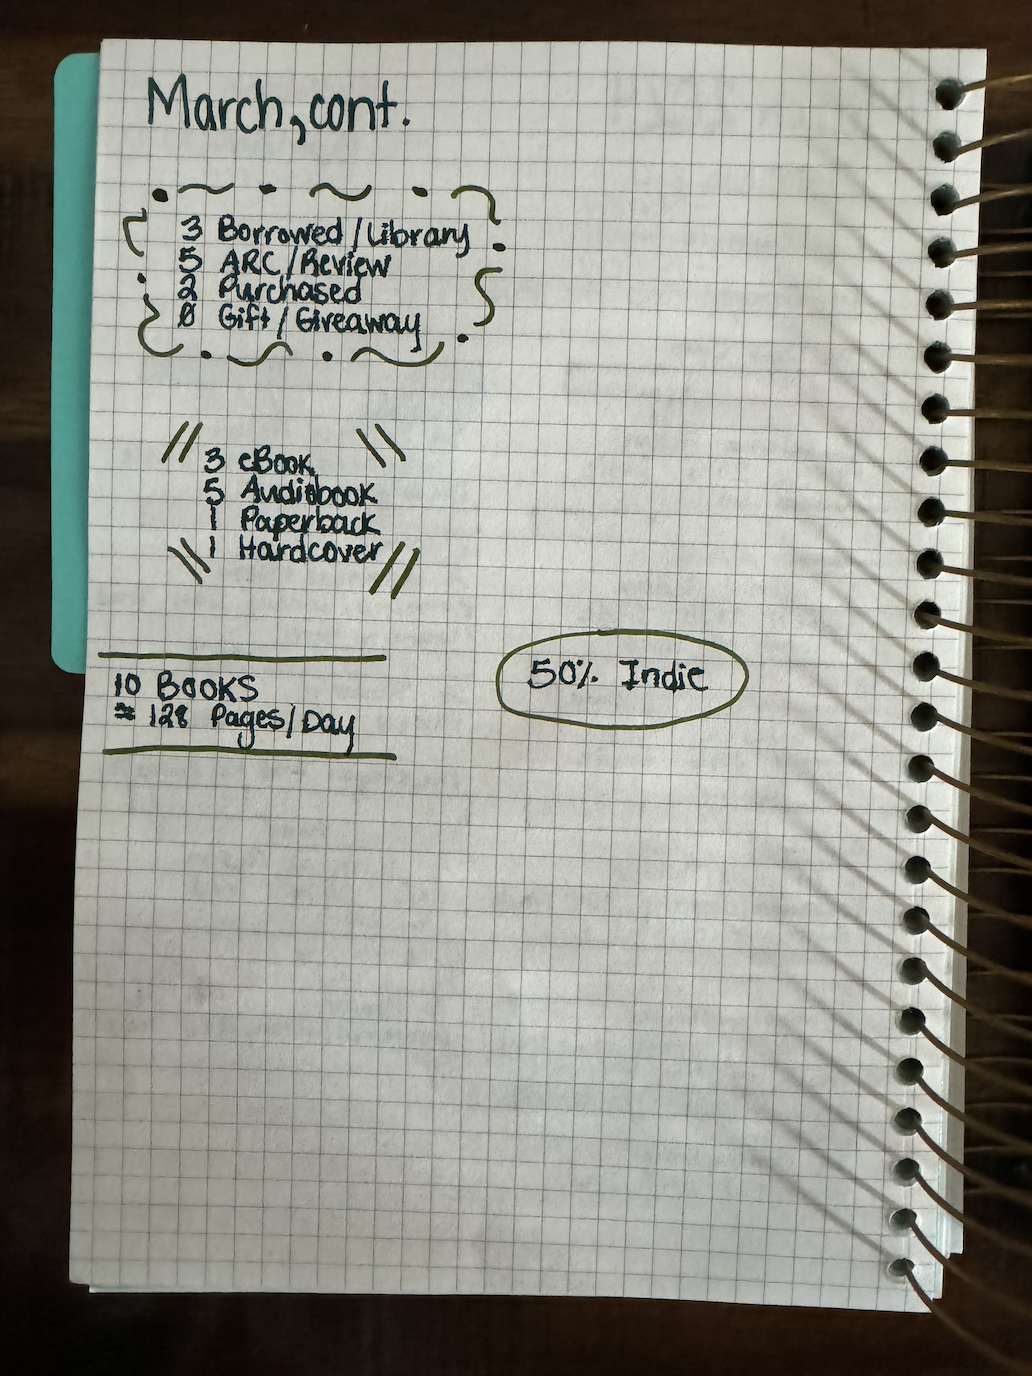 March, cont.
3 Borrowed / Library
5 ARC / Review
2 Purchased
Ø Gift / Giveaway
3 eBook
5 Audiobook
1 Paperback
1 Hardcover
10 BOOKS
≈ 128 Pages / Day
50% Indie